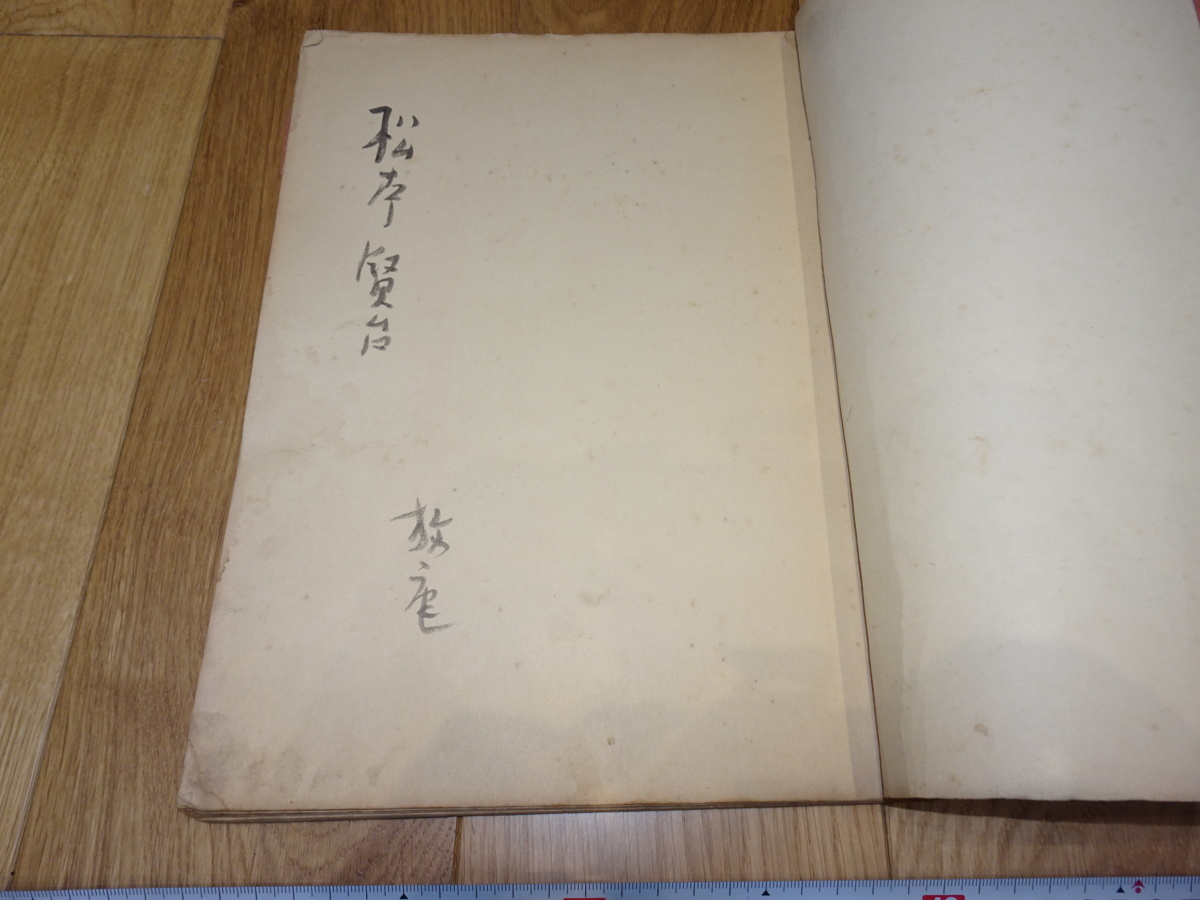 松本賢台
放庵